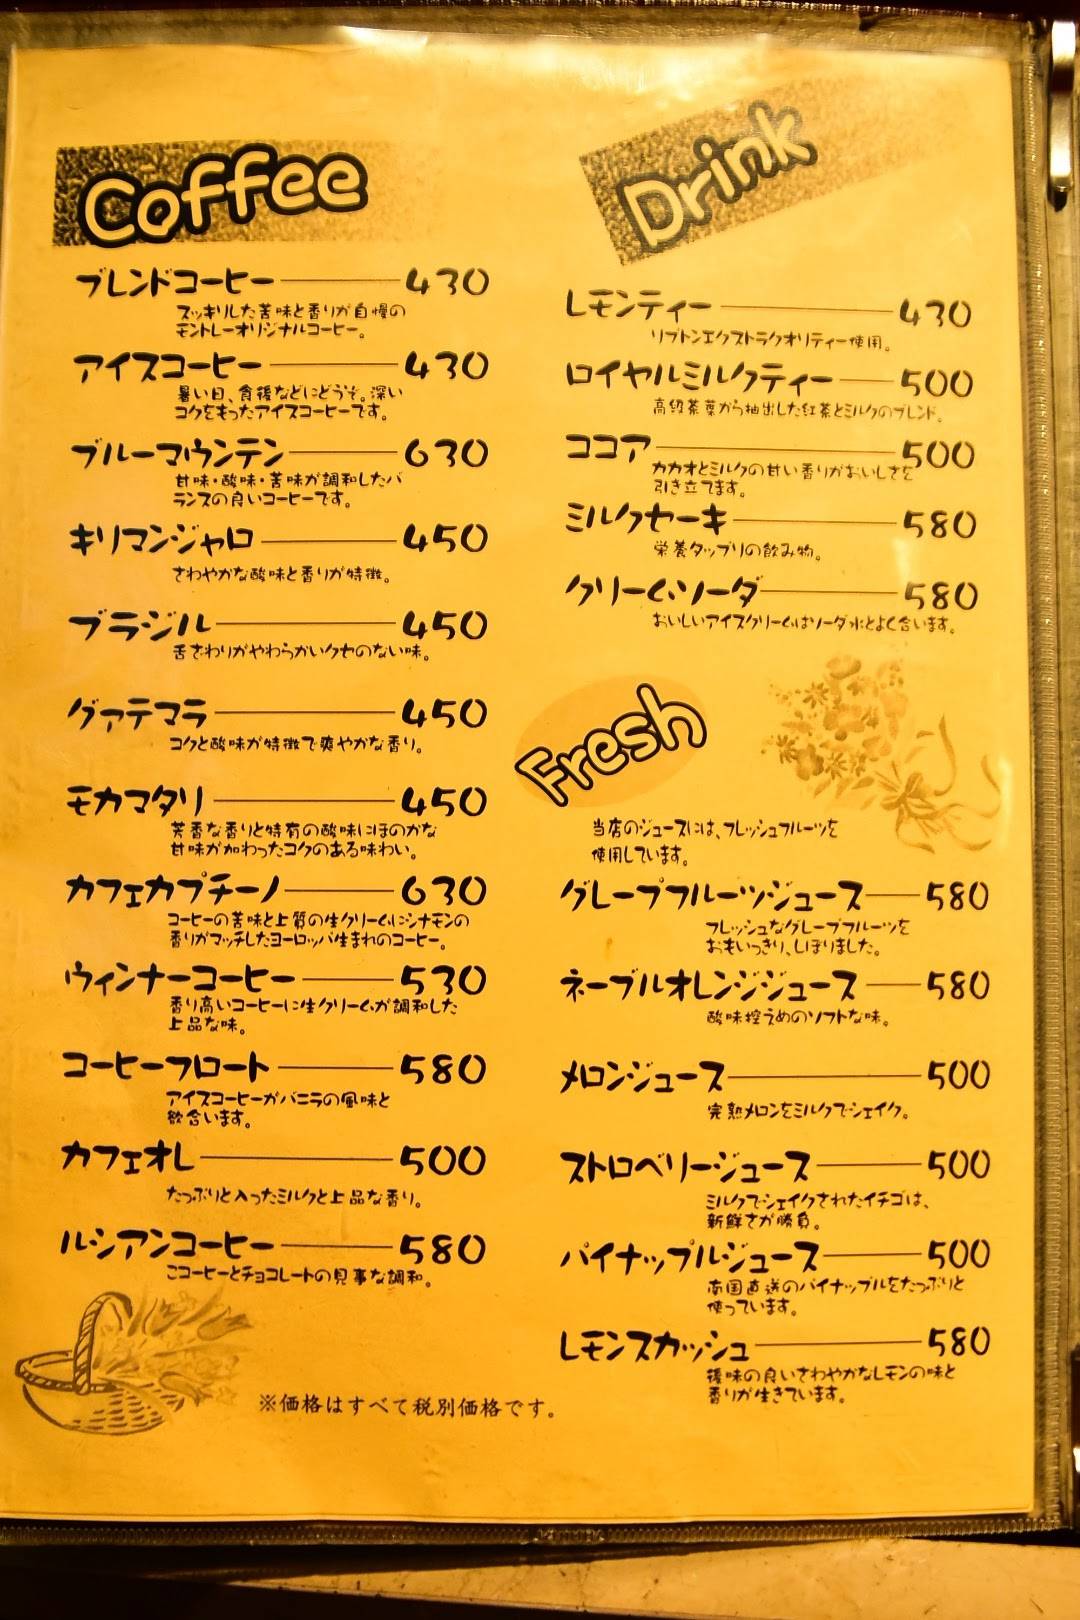 Coffee
ブレンドコーヒー 430
スッキリした苦味と香りが自慢の
モントレーオリジナルコーヒー。
アイスコーヒー 430
暑い日、食後などにどうぞ。深い
コクをもったアイスコーヒーです。
ブルーマウンテン 630
甘味・酸味・苦味が調和したバ
ランスの良いコーヒーです。
キリマンジャロ 450
さわやかな酸味と香りが特徴。
ブラジル 450
舌ざわりがやわらかいクセのない味。
グァテマラ 450
コクと酸味が特徴で爽やかな香り。
モカマタリ 450
芳香な香りと特有の酸味にほのかな
甘味が加わったコクのある味わい。
カフェカプチーノ 630
コーヒーの苦味と上質の生クリームにシナモンの
香りがマッチしたヨーロッパ生まれのコーヒー。
ウィンナーコーヒー 530
香り高いコーヒーに生クリームが調和した
上品な味。
コーヒーフロート 580
アイスコーヒーがバニラの風味と
飲合います。
カフェオレ 500
たっぷりと入ったミルクと上品な香り。
ルシアンコーヒー 580
こコーヒーとチョコレートの見事な調和。
※価格はすべて税別価格です。
Drink
レモンティー 430
リプトンエクストラクオリティー使用。
ロイヤルミルクティー 500
高級茶葉から抽出した紅茶とミルクのブレンド。
ココア 500
カカオとミルクの甘い香りがおいしさを
引き立てます。
ミルクセーキ 580
栄養タップリの飲み物。
クリームソーダ 580
おいしいアイスクリームはソーダ水とよく合います。
Fresh
当店のジュースには、フレッシュフルーツを
使用しています。
グレープフルーツジュース 580
フレッシュなグレープフルーツを
おもいっきり、しぼりました。
ネーブルオレンジジュース 580
酸味控えめのソフトな味。
メロンジュース 500
完熟メロンをミルクでシェイク。
ストロベリージュース 500
ミルクでシェイクされたイチゴは、
新鮮さが勝負。
パイナップルジュース 500
南国直送のパイナップルをたっぷりと
使っています。
レモンスカッシュ 580
後味の良いさわやかなレモンの味と
香りが生きています。